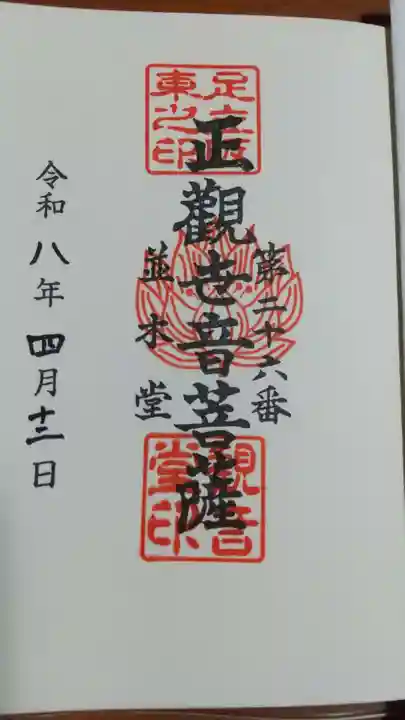 第二十六番
正觀世音菩薩
並木堂
令和八年四月十二日
足立坂東之印
觀音堂印